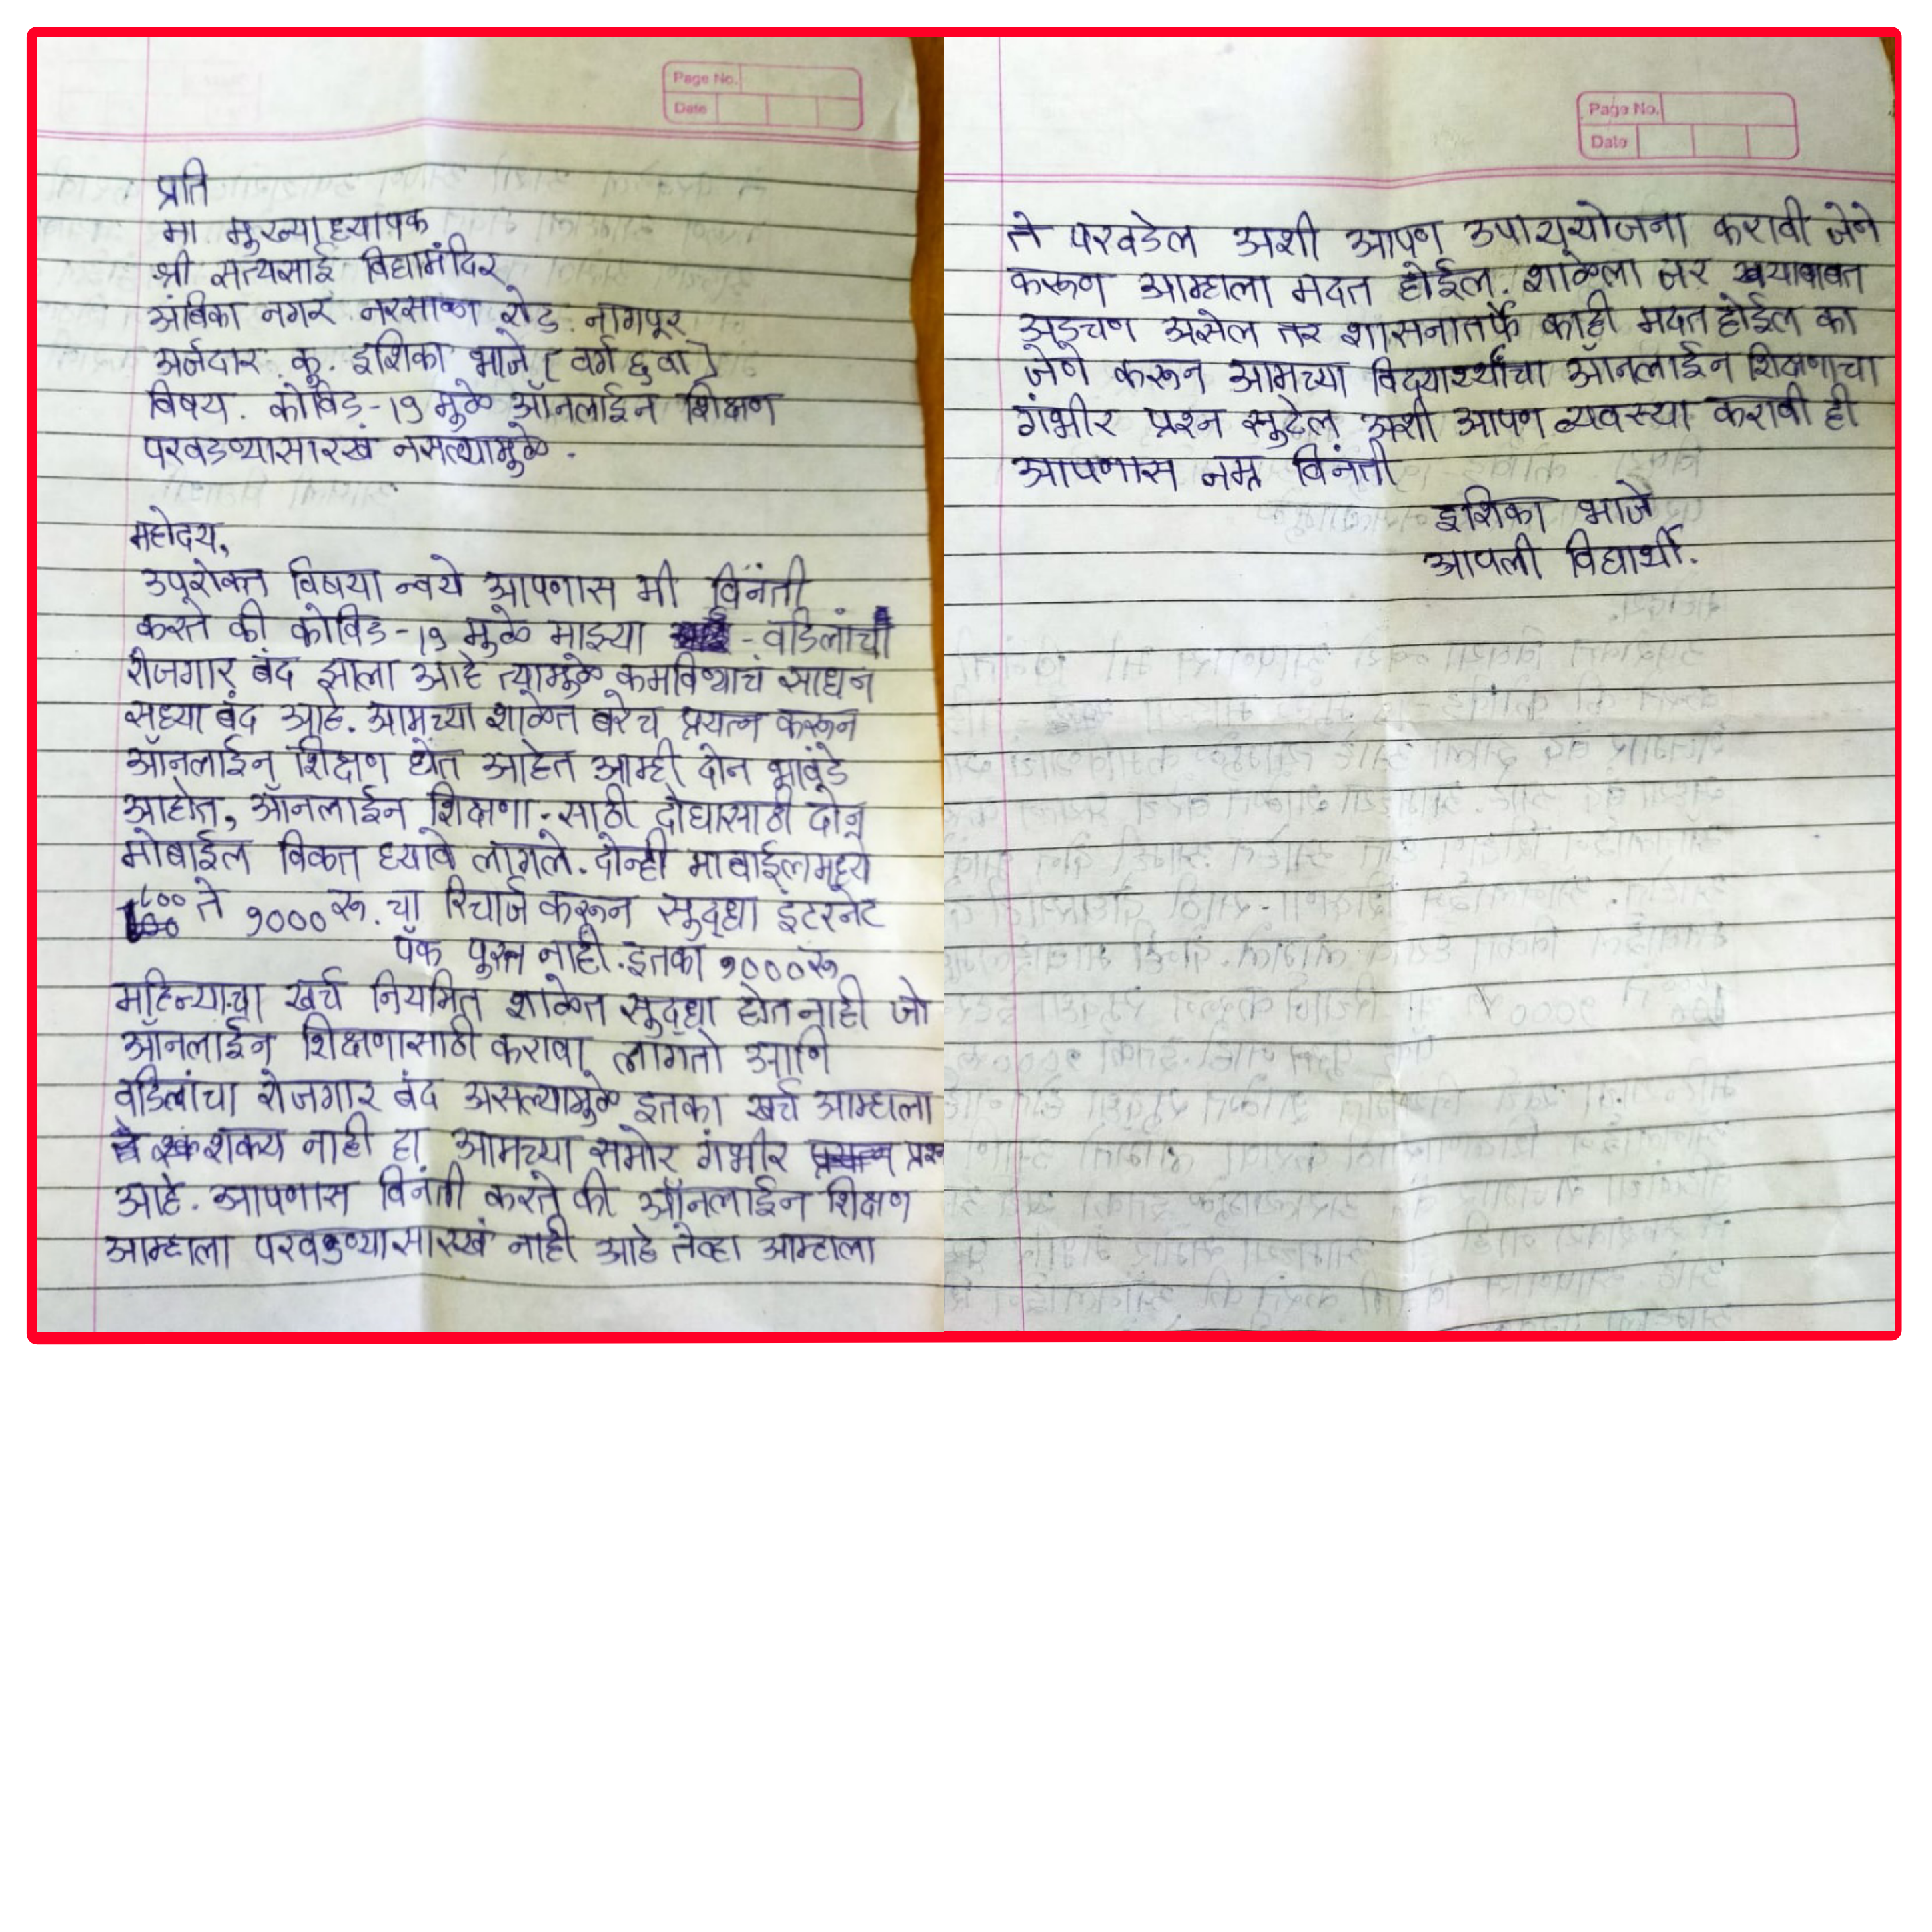 Page No.
Date
प्रति
मा मुख्याध्यापक
श्री सत्यसाई विद्यामंदिर
अंबिका नगर नरसाळा रोड. नागपूर
अर्जदार. कु. इशिका भाजे [वर्ग ६ वा]
विषय. कोविड-१९ मुळे ऑनलाईन शिक्षण
परवडण्यासारखं नसल्यामुळे.
महोदय,
उपरोक्त विषया न्वये आपणास मी विनंती
करते की कोविड-१९ मुळे माझ्या - वडिलांचा
रोजगार बंद झाला आहे त्यामुळे कमविण्याचं साधन
सध्या बंद आहे. आमच्या शाळेत बरेच प्रयत्न करून
ऑनलाईन शिक्षण घेत आहेत आम्ही दोन भावंडे
आहोत, ऑनलाईन शिक्षणा-साठी दोघासाठी दोन
मोबाईल विकत घ्यावे लागले. दोन्ही माबाईलमध्ये
८०० ते १००० रू. चा रिचार्ज करून सुद्धा इंटरनेट
पॅक पुरत नाही. इतका १००० रू
महिन्याचा खर्च नियमित शाळेत सुद्धा होत नाही जो
ऑनलाईन शिक्षणासाठी करावा लागतो आणि
वडिलांचा रोजगार बंद असल्यामुळे इतका खर्च आम्हाला
शक्य नाही हा आमच्या समोर गंभीर प्रश्न
आहे. आपणास विनंती करते की ऑनलाईन शिक्षण
आम्हाला परवडण्यासारखं नाही आहे तेव्हा आम्हाला
Page No.
Date
ते परवडेल अशी आपण उपाययोजना करावी जेने
करूण आम्हाला मदत होईल. शाळेला जर याबाबत
अडचण असेल तर शासनातर्फे काही मदत होईल का
जेणे करून आमच्या विद्यार्थ्यांचा ऑनलाईन शिक्षणाचा
गंभीर प्रश्न सुटेल अशी आपण व्यवस्था करावी ही
आपणास नम्र विनंती
इशिका भाजे
आपली विद्यार्थी.